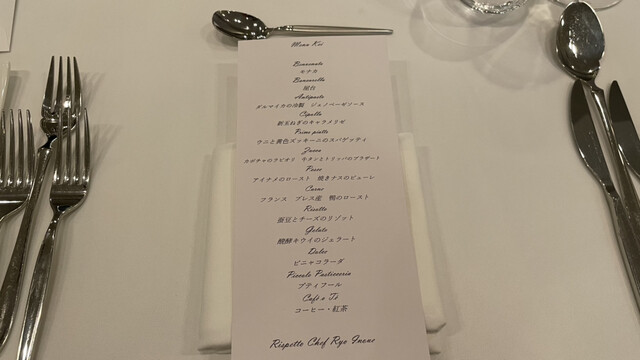 Menu Koi
Benvenuto
モナカ
Bancarella
屋台
Antipasto
ダルマイカの冷製　ジェノベーゼソース
Cipolla
新玉ねぎのキャラメリゼ
Primo piatto
ウニと黄色ズッキーニのスパゲッティ
Zucca
カボチャのラビオリ　牛タンとトリッパのブラザート
Pesce
アイナメのロースト　焼きナスのピューレ
Carne
フランス　ブレス産　鴨のロースト
Risotto
蚕豆とチーズのリゾット
Gelato
醗酵キウイのジェラート
Dolce
ピニャコラーダ
Piccolo Pasticceria
プティフール
Café o Té
コーヒー・紅茶
Rispetto Chef Ryo Inoue